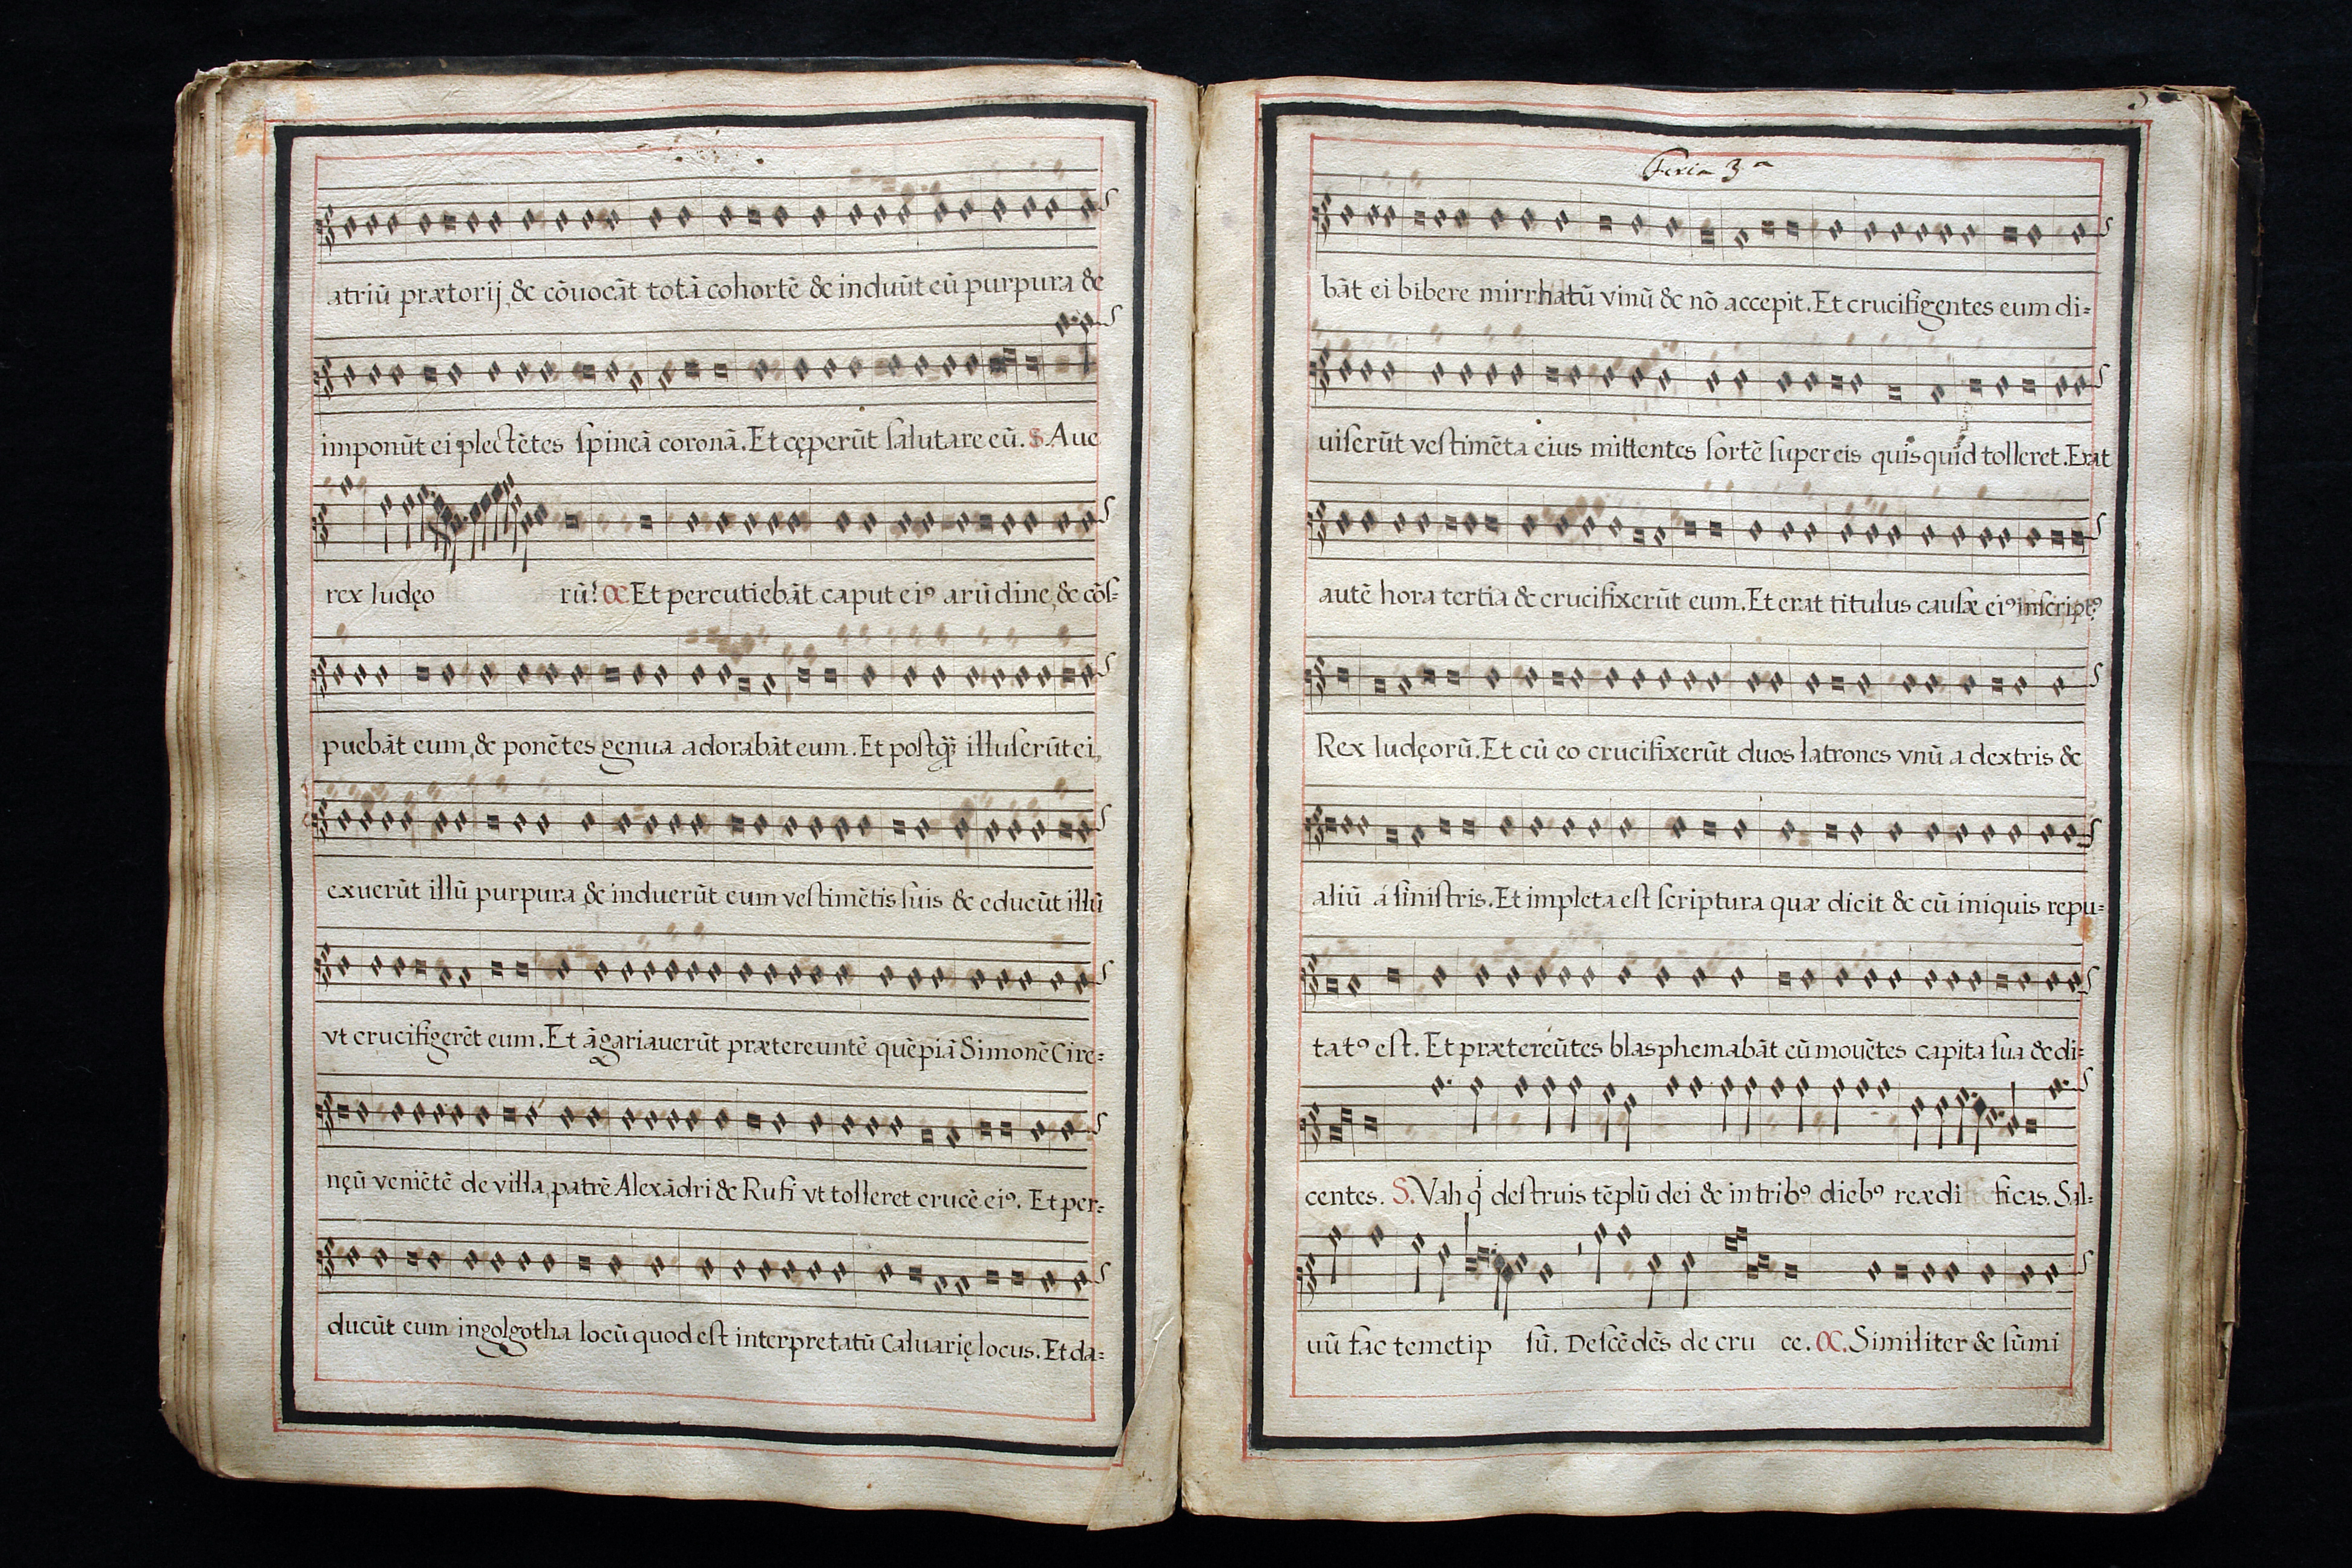 atriū prætorij, & cōuocāt totā cohortē & induūt eū purpura &
imponūt ei plectētes spineā coronā. Et cęperūt salutare eū. S. Aue
rex Iudęo rū! C. Et percutiebāt caput ei⁹ arūdine, & cōs-
puebāt eum, & ponētes genua adorabāt eum. Et postq̄ illuserūt ei,
exuerūt illū purpura & induerūt eum vestimētis suis & educūt illū
vt crucifigerēt eum. Et āgariauerūt prætereuntē quēpiā Simonē Cire=
nęū veniētē de villa, patrē Alexādri & Rufi vt tolleret crucē ei⁹. Et per=
ducūt eum in golgotha locū quod est interpretatū Caluarię locus. Et da=
Feria 3ª
bāt ei bibere mirrhatū vinū & nō accepit. Et crucifigentes eum di=
uiserūt vestimēta eius mittentes sortē super eis quis quid tolleret. Erat
autē hora tertia & crucifixerūt eum. Et erat titulus causæ ei⁹ inscript⁹
Rex Iudęorū. Et cū eo crucifixerūt duos latrones vnū a dextris &
aliū á sinistris. Et impleta est scriptura quæ dicit & cū iniquis repu=
tat⁹ est. Et prætereūtes blasphemabāt eū mouētes capita sua & di=
centes. S. Vah q̇ destruis tēplū dei & in trib⁹ dieb⁹ reædi ficas. Sal=
uū fac temetip sū. Descēdēs de cru ce. C. Similiter & sūmi